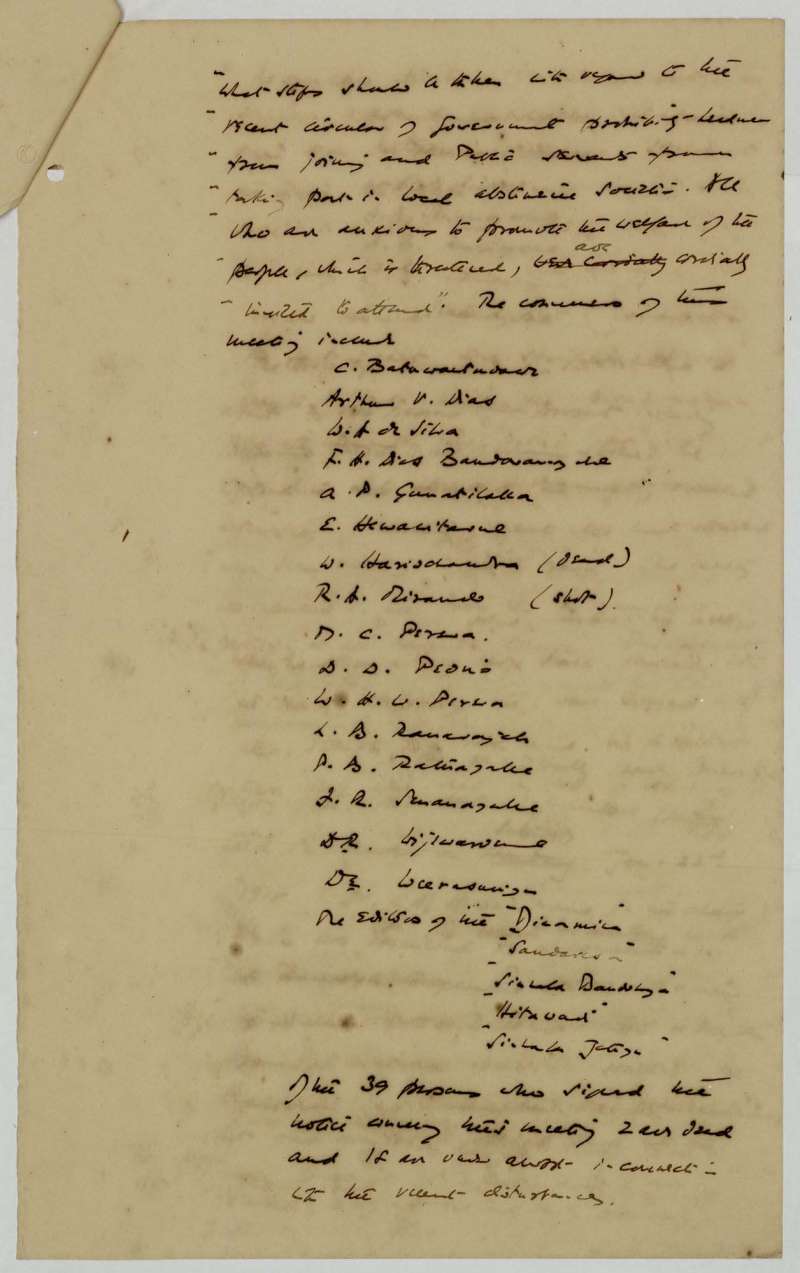 "What steps should be taken with regard to the
"recent circular of Government prohibiting headmen
"from joining and Public servants from
"taking part in local abstinence societies. All
"who are anxious to promote the welfare of the
"people, which is threatened, are cordially
"invited to attend". The conveners of this
meeting include
C. Batuwantudawe
Arthur V. Dias
W. A de Silva
F. H. Dias Bandaranayake
A. D. Gunatilaka
E. Hewavitarne
W. Harischandra (dead)
R. A. Mirando (shot).
M. C. Perera.
D. D. Pedris
W. H. W. Perera
L. B. Ranaraja
P. B. Ratnayake
F. R. Senanayake
DR. Wijewardene
Dr. Weerasuriya
The Editors of the "Dinamina"
"Sandaresa"
"Sinhala Bauddhaya"
"Hitavadi"
"Sinhala Jatiya"
Of the 39 persons who signed the
notice convening this meeting 2 are dead
and 18 are under arrest in connection
with the recent disturbances.